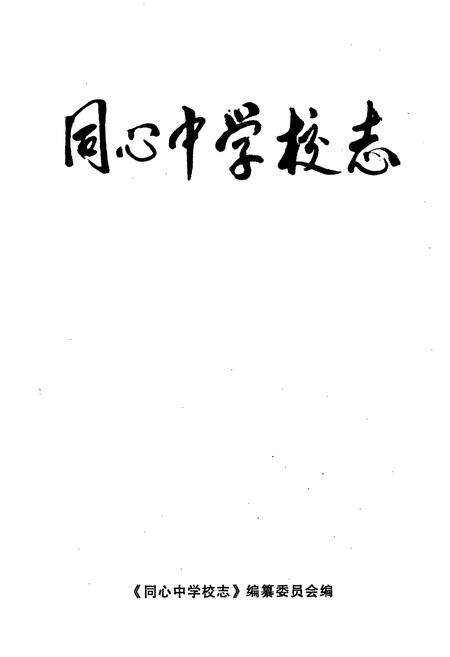 同心中学校志
《同心中学校志》编纂委员会编